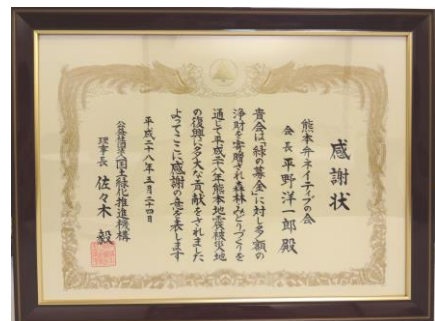 感謝状
熊本弁ネイティブの会
会長 平野洋一郎 殿
貴会は「緑の募金」に対し多額の
浄財を寄贈され森林・みどりづくりを
通じて平成二十八年熊本地震被災地
の復興に多大な貢献をされました
よってここに感謝の意を表します
平成二十八年五月二十四日
公益社団法人国土緑化推進機構
理事長 佐々木 毅